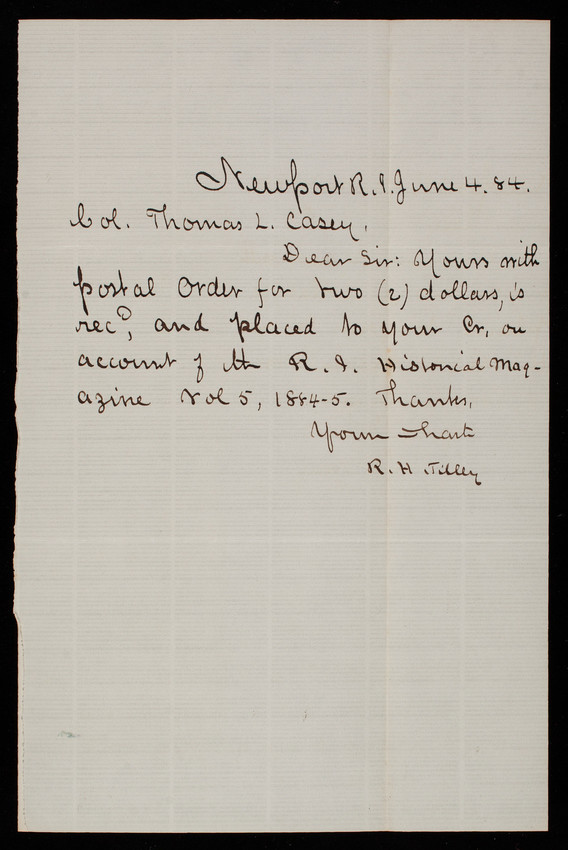 Newport R.I. June 4. 84.
Col. Thomas L. Casey,
Dear Sir: Yours with
postal order for two (2) dollars, is
recd, and placed to your Cr, on
account of the R. I. Historical Mag-
azine Vol 5, 1884-5. Thanks,
Yours
R. H. Tilley